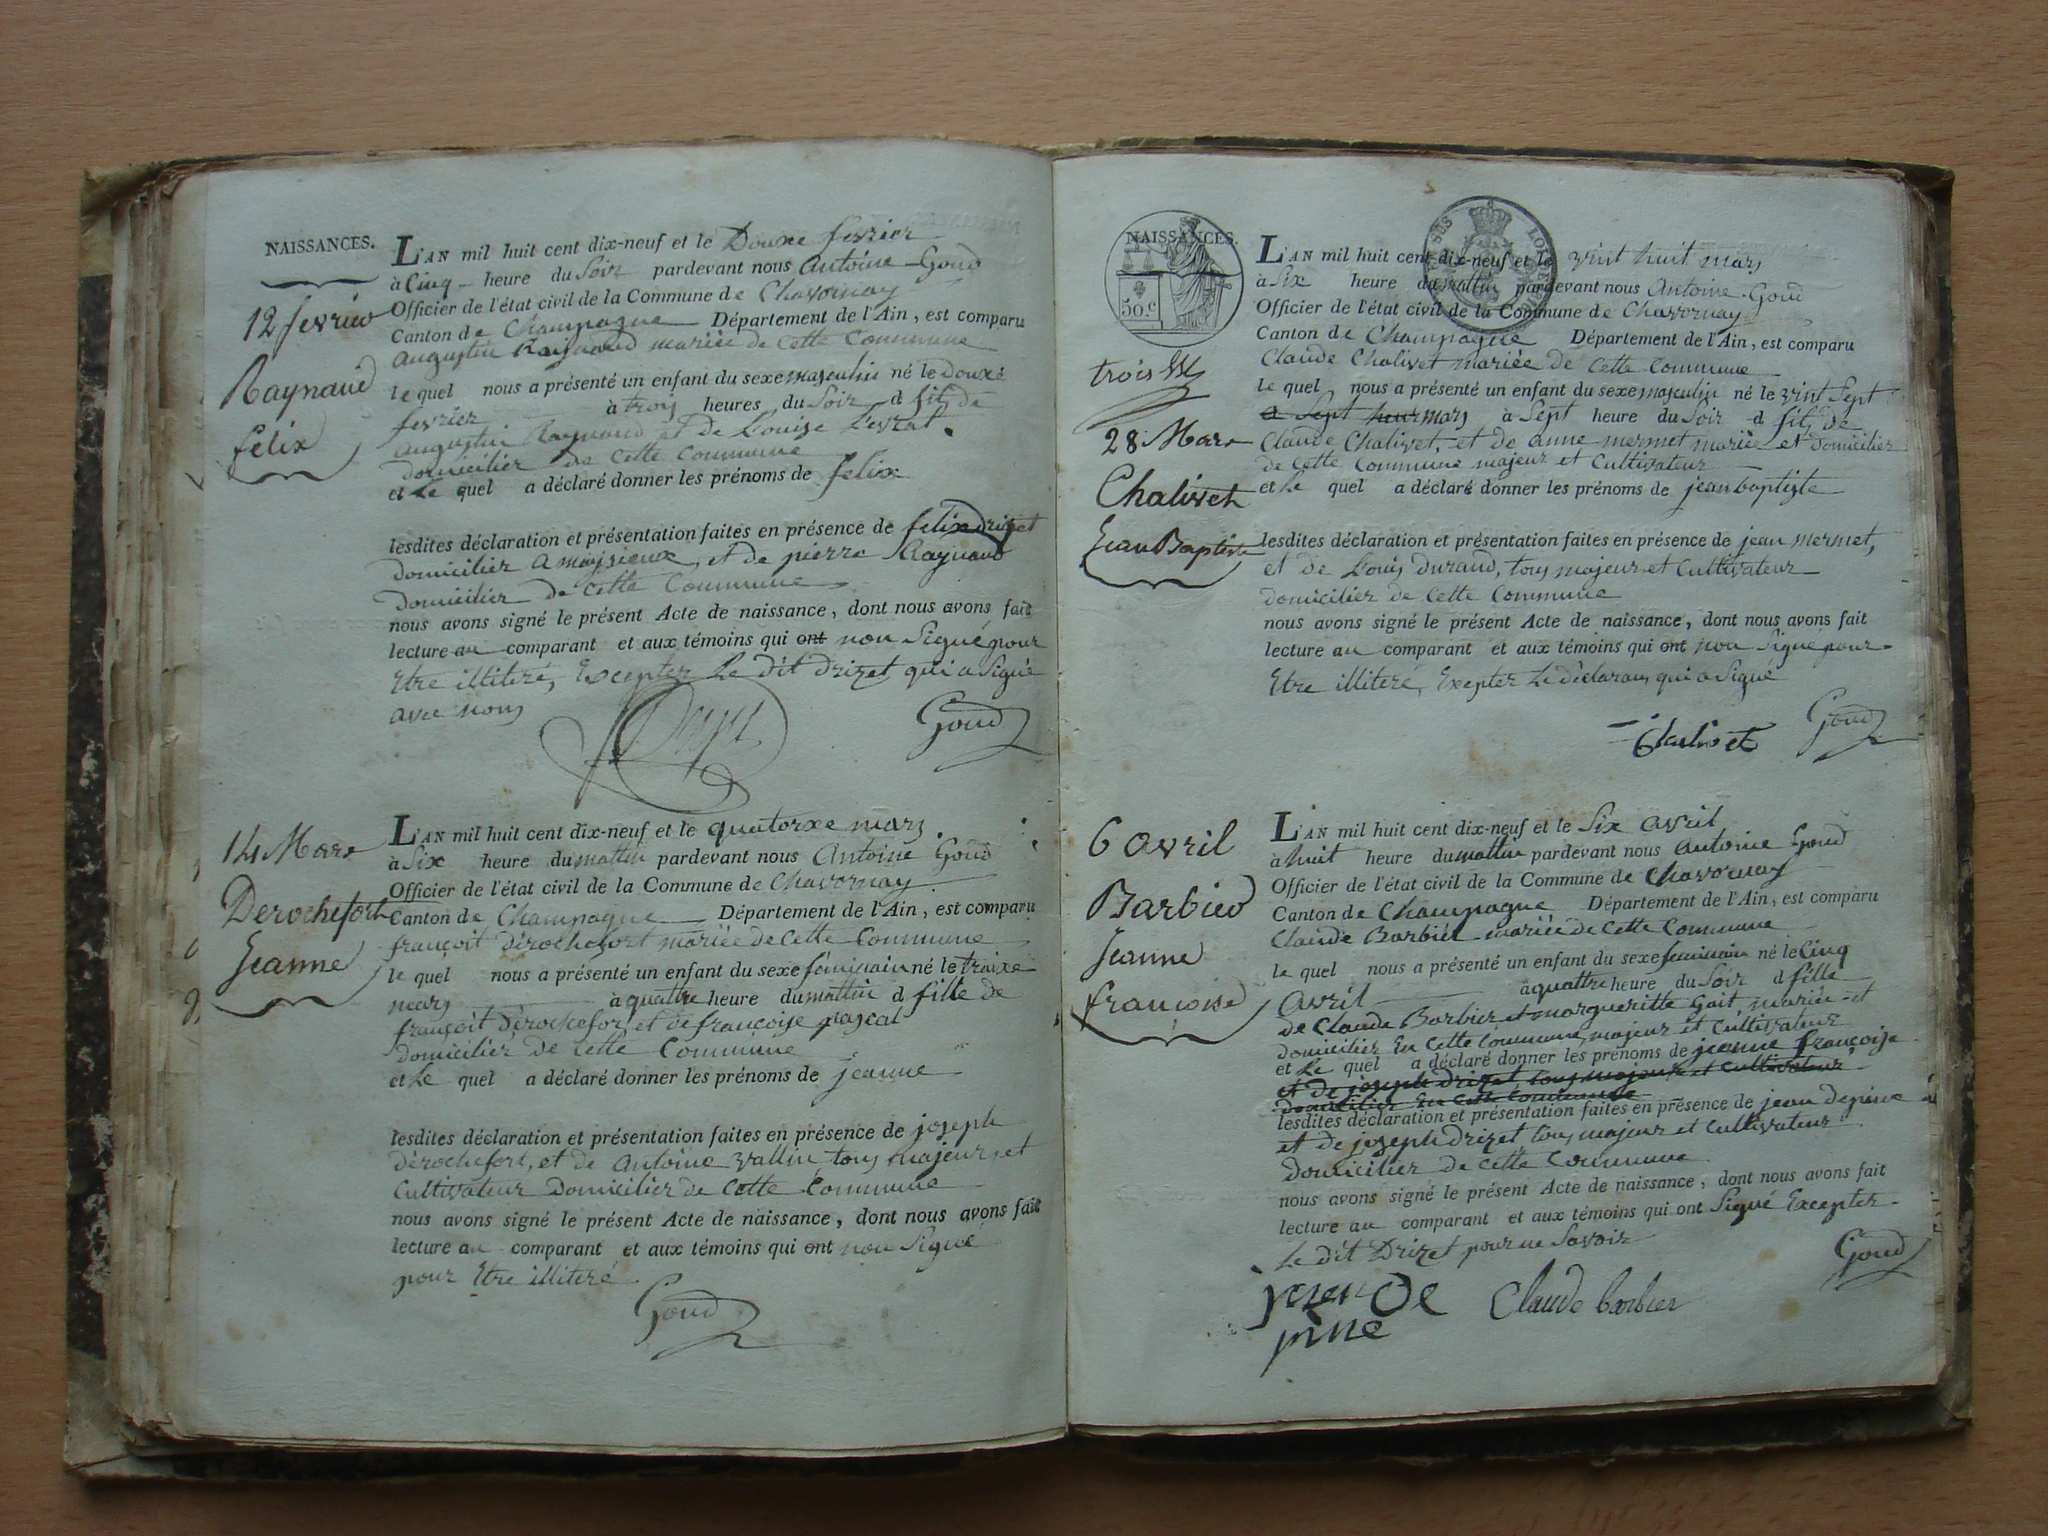 NAISSANCES.
12 fevrier
Raynaud
felix
L'AN mil huit cent dix-neuf et le Douxe fevrier
à Cinq heure du Soir pardevant nous Antoine Goud
Officier de l'état civil de la Commune de Chavornay
Canton de Champagne Département de l'Ain, est comparu
augustin Raynaud mariée de Cette Commune
le quel nous a présenté un enfant du sexe masculin né le douxe
fevrier à trois heures du Soir d fils de
augustin Raynaud et de Louise Levrat.
domicilier de Cette Commune
et Le quel a déclaré donner les prénoms de felix
lesdites déclaration et présentation faites en présence de felix drizet
domicilier a et de pierre Raynaud
domicilier de Cette Commune
nous avons signé le présent Acte de naissance, dont nous avons fait
lecture au comparant et aux témoins qui ont non Signé pour
Etre illiteré, Excepter Le dit drizet qui a Signé
avec nous
Goud
14 Mars
Derochefort
Jeanne
L'AN mil huit cent dix-neuf et le quatorxe mars
à Six heure du mattin pardevant nous Antoine Goud
Officier de l'état civil de la Commune de Chavornay
Canton de Champagne Département de l'Ain, est comparu
françoit dérochefort mariée de Cette Commune
le quel nous a présenté un enfant du sexe féminain né le traixe
mars à quattre heure du mattin d fille de
françoit dérochefor, et de françoise pascal
domicilier de Cette Commune
et Le quel a déclaré donner les prénoms de jeanne
lesdites déclaration et présentation faites en présence de joseph
dérochefort, et de Antoine vallin tous majeur, et
Cultivateur domicilier de Cette Commune
nous avons signé le présent Acte de naissance, dont nous avons fait
lecture au comparant et aux témoins qui ont non Signé
pour Etre illiteré
Goud
NAISSANCES.
50.c
trois
28 Mars
Chalivet
Jean Baptiste
L'AN mil huit cent dix-neuf et le vint huit mars
à Six heure du mattin pardevant nous Antoine Goud
Officier de l'état civil de la Commune de Chavornay
Canton de Champagne Département de l'Ain, est comparu
Claude Chalivet mariée de Cette Commune
le quel nous a présenté un enfant du sexe masculin né le vint Sept
a Sept heur mars à Sept heure du Soir d fils de
Claude Chalivet, et de anne mermet mariée et domicilier
de Cette Commune majeur et Cultivateur
et Le quel a déclaré donner les prénoms de jean baptiste
lesdites déclaration et présentation faites en présence de jean mermet,
et de Louis durand, tous majeur et Cultivateur
domicilier de Cette Commune
nous avons signé le présent Acte de naissance, dont nous avons fait
lecture au comparant et aux témoins qui ont non Signé pour
Etre illiteré, Exepter Le déclarans qui a Signé
Chalivet Goud
6 avril
Barbier
Jeanne
françoise
L'AN mil huit cent dix-neuf et le Six avril
à huit heure du mattin pardevant nous Antoine Goud
Officier de l'état civil de la Commune de Chavornay
Canton de Champagne Département de l'Ain, est comparu
Claude Barbier mariée de Cette Commune
le quel nous a présenté un enfant du sexe feminain né le Cinq
avril à quattre heure du Soir d fille
de Claude Barbier et margueritte Goit mariée et
domicilier En Cette Commune majeur et Cultivateur
et Le quel a déclaré donner les prénoms de jeanne françoise
et de joseph drizet tous majeur et Cultivateur
domicilier En Cette Commune
lesdites déclaration et présentation faites en présence de jean depine
et de joseph drizet tous majeur et Cultivateur
domicilier de Cette Commune
nous avons signé le présent Acte de naissance, dont nous avons fait
lecture au comparant et aux témoins qui ont Signé Excepter
Le dit Drizet pour ne Savoir
Goud
De Claude barbier
pine